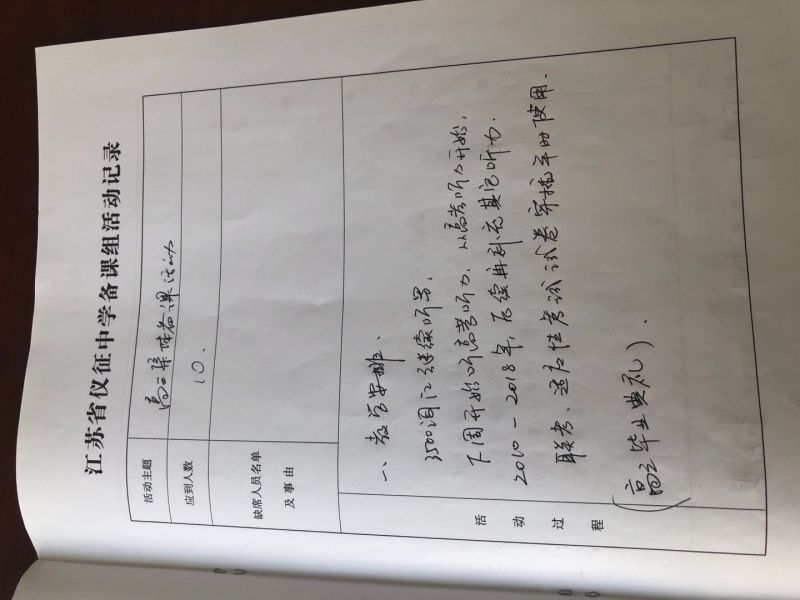 江苏省仪征中学备课组活动记录
活动主题 高三集体备课活动
应到人数 10.
缺席人员名单
及事由
活动过程
一、教学安排.
3500词汇继续听写.
下周开始听高考听力. 从高考听力开始,
2010-2018年, 后续再补充其它听力.
联考、适应性考试试卷穿插平时使用.
(高三毕业典礼).